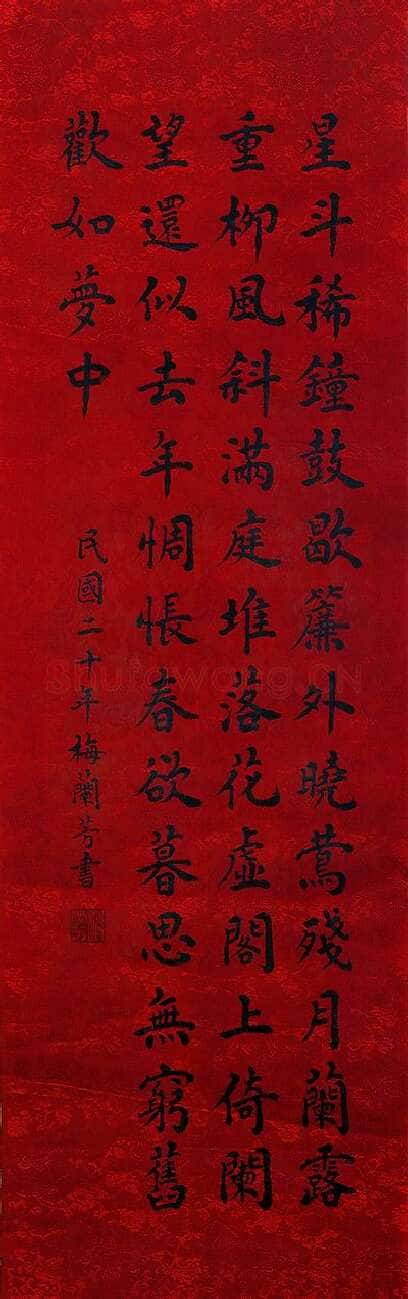 星斗稀鐘鼓歇簾外曉鶯殘月蘭露
重柳風斜滿庭堆落花虛閣上倚闌
望還似去年惆悵春欲暮思無窮舊
歡如夢中
民國二十年梅蘭芳書
Shufawang.CN